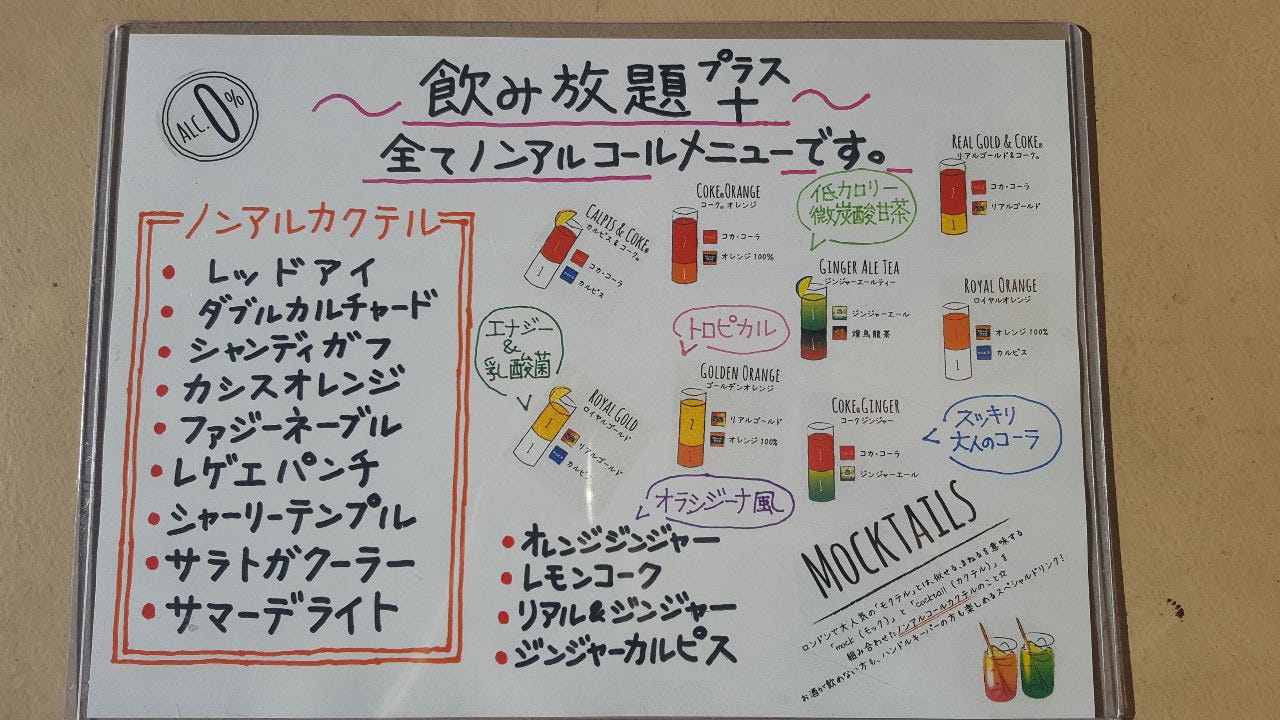 ALC.0%
～飲み放題プラス＋～
全てノンアルコールメニューです。
ノンアルカクテル
・レッドアイ
・ダブルカルチャード
・シャンディガフ
・カシスオレンジ
・ファジーネーブル
・レゲエパンチ
・シャーリーテンプル
・サラトガクーラー
・サマーデライト
CALPIS & COKE®
カルピス&コーク®
1
1
コカ・コーラ
カルピス
COKE® ORANGE
コーク® オレンジ
2
1
コカ・コーラ
オレンジ100%
低カロリー
微炭酸甘茶
GINGER ALE TEA
ジンジャーエールティー
1
1
ジンジャーエール
煌烏龍茶
REAL GOLD & COKE®
リアルゴールド&コーク®
2
1
コカ・コーラ
リアルゴールド
ROYAL ORANGE
ロイヤルオレンジ
1
1
オレンジ100%
カルピス
エナジー
&
乳酸菌
ROYAL GOLD
ロイヤルゴールド
1
1
リアルゴールド
カルピス
トロピカル
GOLDEN ORANGE
ゴールデンオレンジ
2
1
リアルゴールド
オレンジ100%
COKE® GINGER
コーク® ジンジャー
1
1
コカ・コーラ
ジンジャーエール
スッキリ
大人のコーラ
オランジーナ風
・オレンジジンジャー
・レモンコーク
・リアル&ジンジャー
・ジンジャーカルピス
MOCKTAILS
ロンドンで大人気の「モクテル」とは、似せる、まねるを意味する
「mock(モック)」と「cocktail(カクテル)」を
組み合わせたノンアルコールカクテルのこと☆
お酒が飲めない方も、ハンドルキーパーの方も楽しめるスペシャルドリンク!